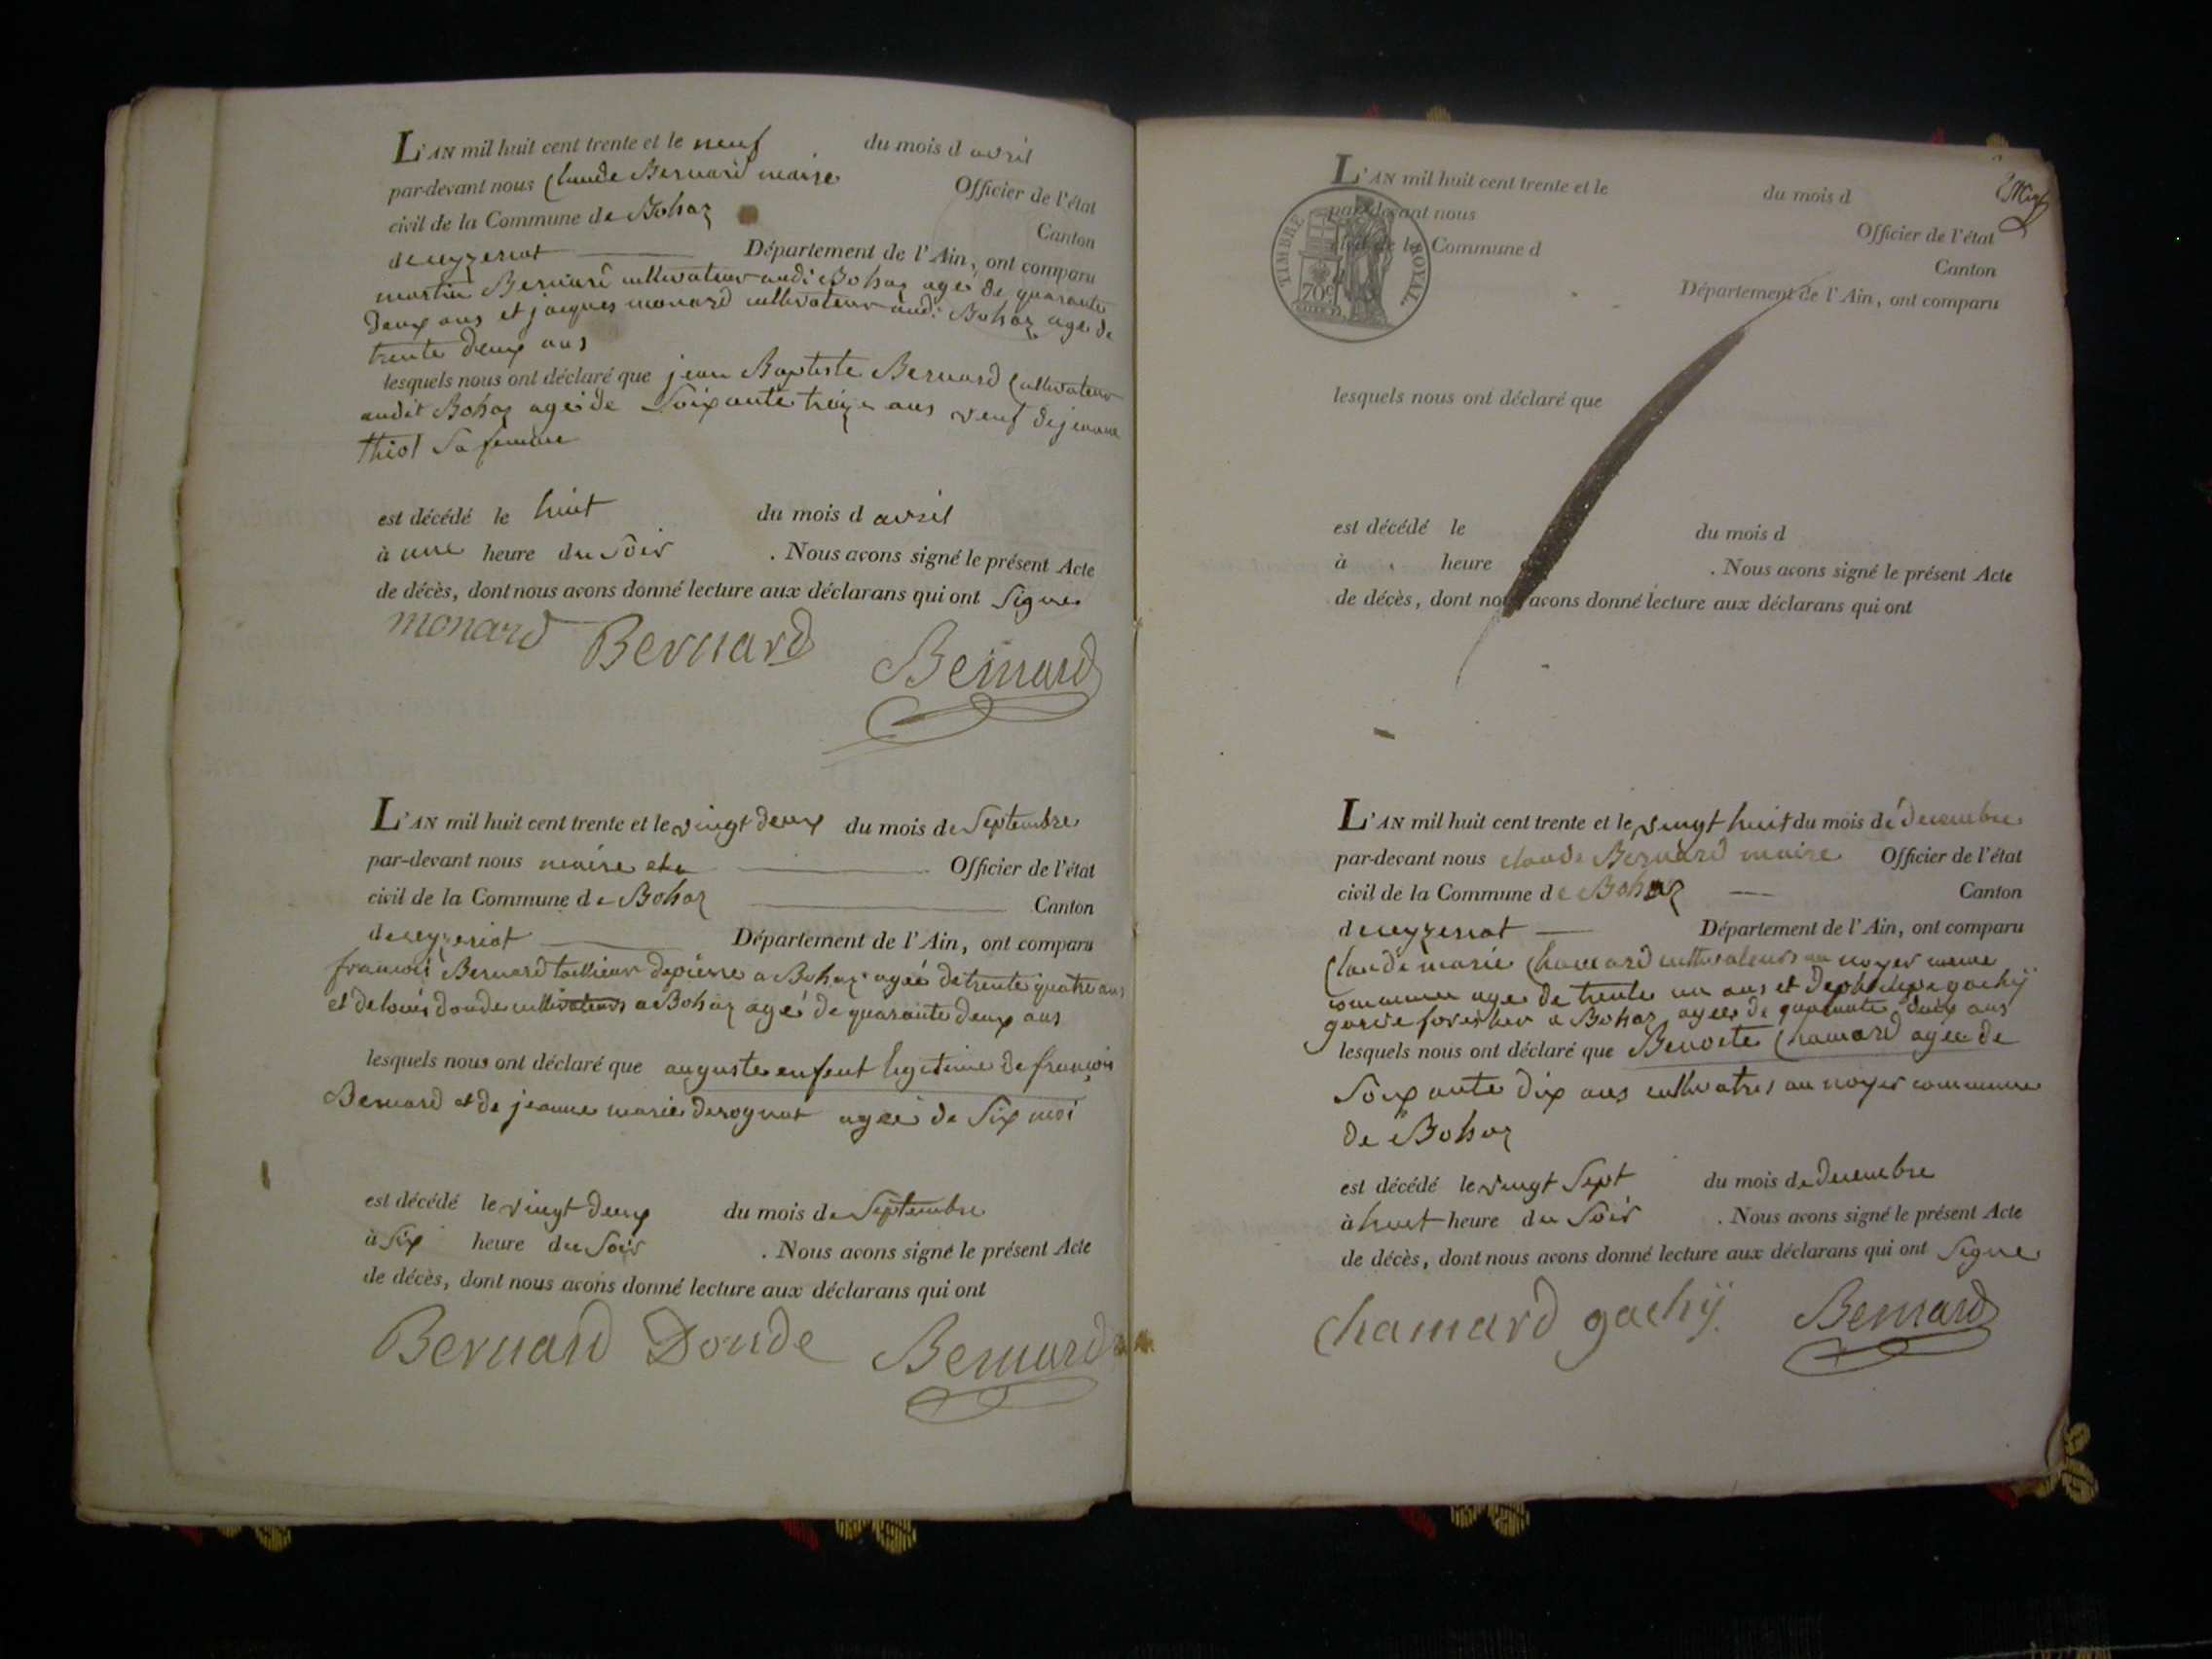 L'AN mil huit cent trente et le neuf du mois d avril
par-devant nous Claude Bernard maire Officier de l'état
civil de la Commune de Bohaz Canton
de ceyzeriat Département de l'Ain, ont comparu
martin Bernard cultivateur audi Bohaz agé de quarante
deux ans et jacques monard cultivateur audi Bohaz agé de
trente deux ans
lesquels nous ont déclaré que jean Baptiste Bernard Cultivateur
audit Bohaz agé de Soixante treize ans veuf de jeanne
thiol Sa femme
est décédé le huit du mois d avril
à une heure du Soir . Nous avons signé le présent Acte
de décès, dont nous avons donné lecture aux déclarans qui ont Signe
monard Bernard Bernard
L'AN mil huit cent trente et le vingt deux du mois de Septembre
par-devant nous maire Officier de l'état
civil de la Commune de Bohaz Canton
de ceyzeriat Département de l'Ain, ont comparu
francois Bernard taillieur depierre a Bohaz agée de trente quatre ans
et de louis donde cultivateurs a Bohaz agé de quarante deux ans
lesquels nous ont déclaré que auguste enfent legetime de françois
Bernard et de jeanne marie derognat agée de Six moi
est décédé le vingt deux du mois de Septembre
à Six heure du Soir . Nous avons signé le présent Acte
de décès, dont nous avons donné lecture aux déclarans qui ont
Bernard Donde Bernard
L'AN mil huit cent trente et le du mois d
par-devant nous Officier de l'état
civil de la Commune d Canton
Département de l'Ain, ont comparu
TIMBRE ROYAL
70c
lesquels nous ont déclaré que
est décédé le du mois d
à heure . Nous avons signé le présent Acte
de décès, dont nous avons donné lecture aux déclarans qui ont
L'AN mil huit cent trente et le vingt huit du mois de decembre
par-devant nous claude Bernard maire Officier de l'état
civil de la Commune de Bohaz Canton
de ceyzeriat Département de l'Ain, ont comparu
Claude marie Chamard cultivateurs au noyer meme
commune age de trente un ans et gachij
garde forestier a Bohaz agée de quarante deux ans
lesquels nous ont déclaré que Benoite Chamard agée de
Soixante dix ans cultivatris au noyer commune
de Bohaz
est décédé le vingt Sept du mois de decembre
à huit heure du Soir . Nous avons signé le présent Acte
de décès, dont nous avons donné lecture aux déclarans qui ont Signe
Chamard gachij Bernard